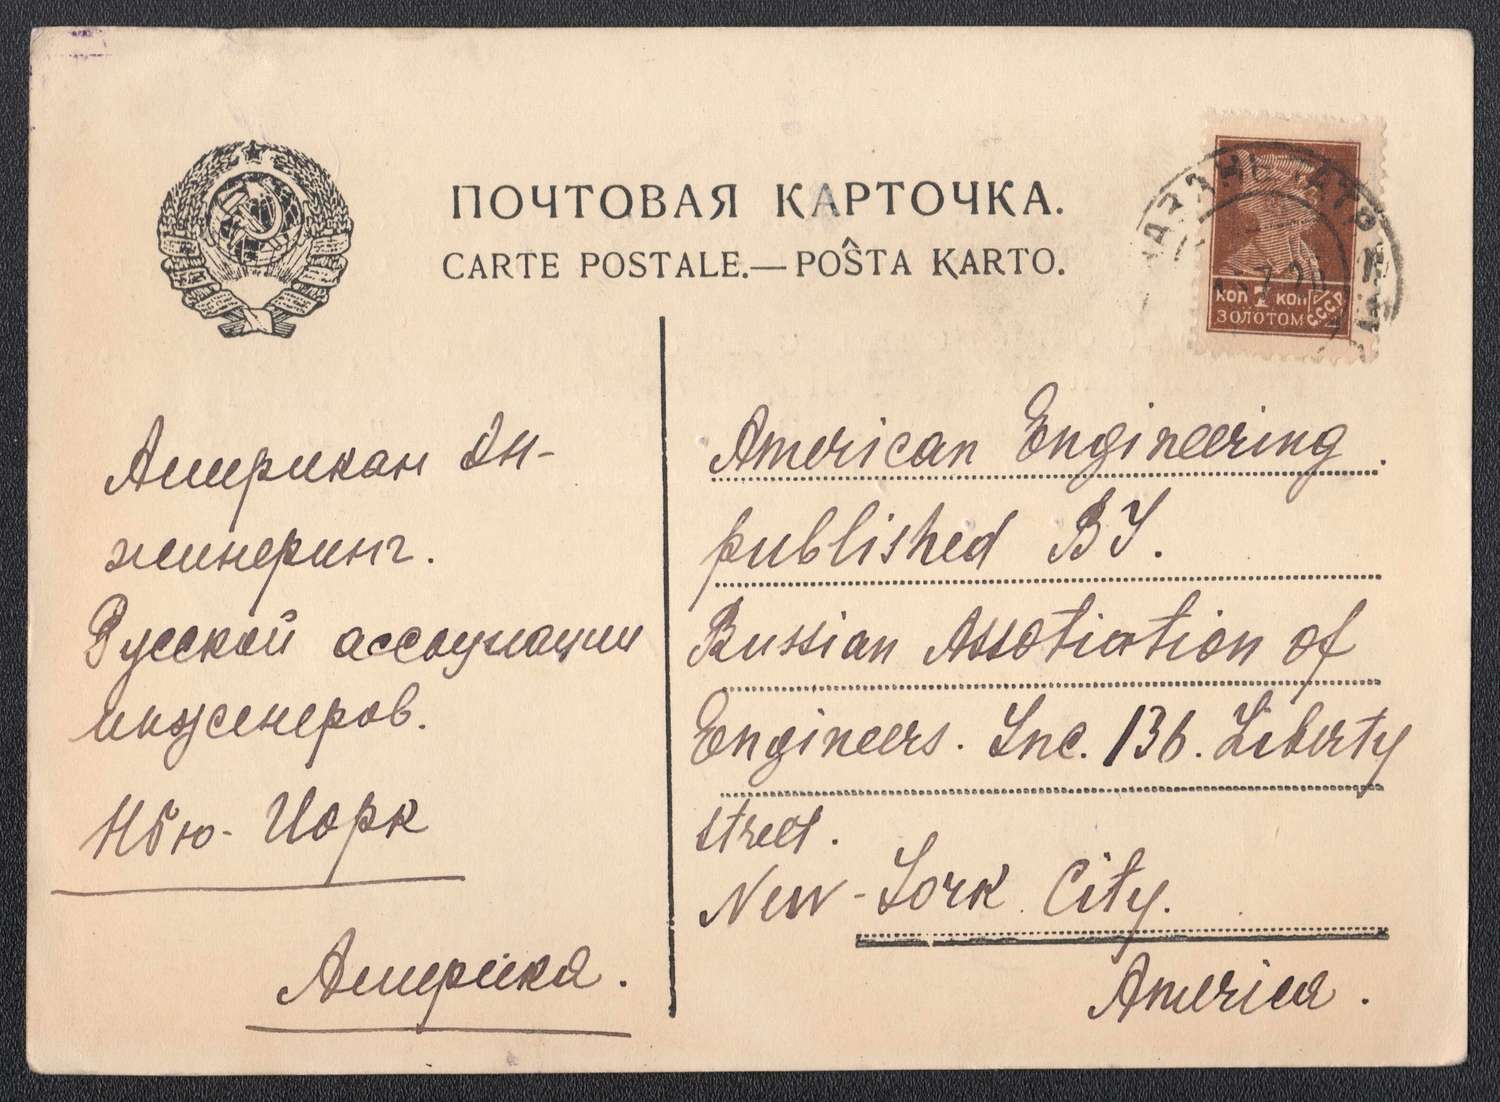 ПОЧТОВАЯ КАРТОЧКА.
CARTE POSTALE.—POŜTA KARTO.
КОП 7 КОП
ЗОЛОТОМ
СССР
Американ Ин-
жинеринг.
Русской ассоциации
инженеров.
Нбю-Иорк
Америка.
American Engineering.
published BY.
Russian Assotiation of
Engineers. Inc. 136. Liberty
street.
New-York City.
America.